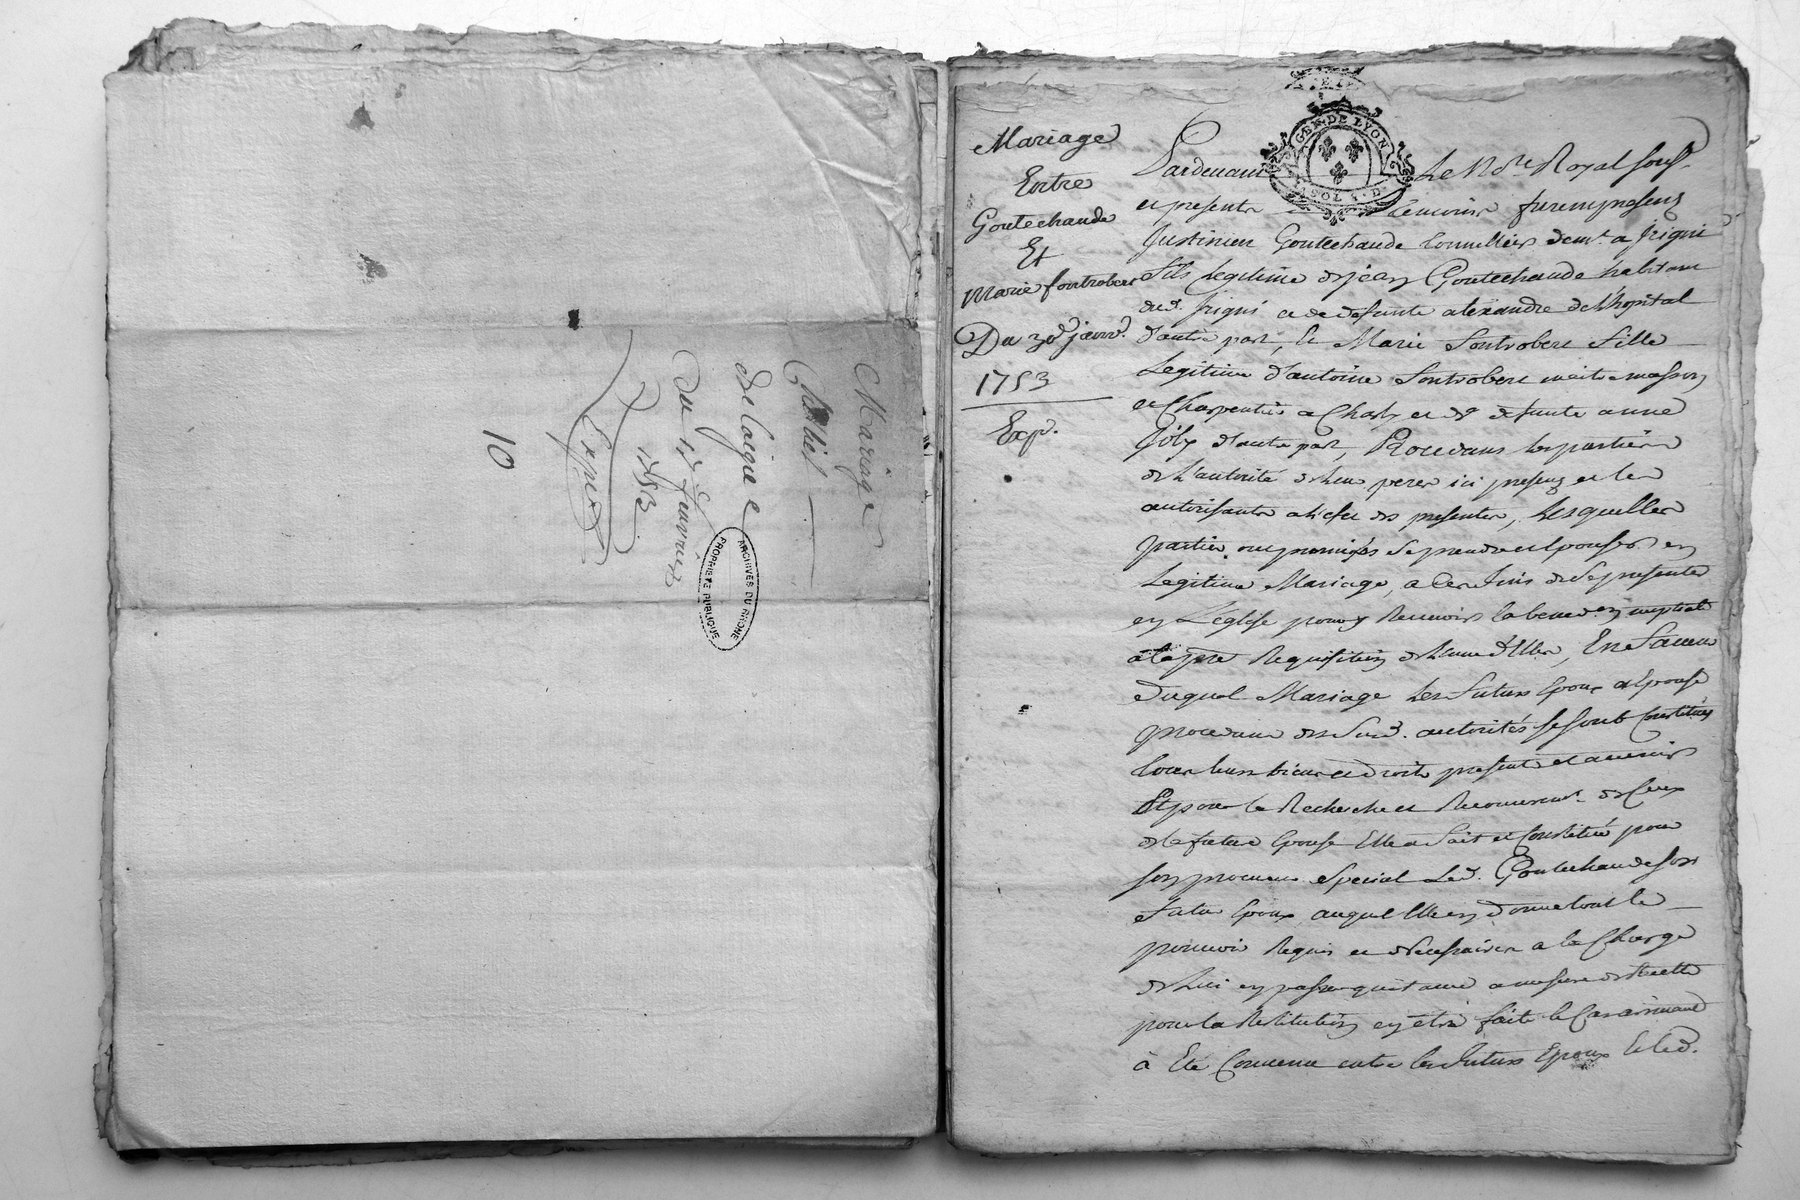 Mariage
Clabiel
Delaigue
Du 17e feuvrier
1753
Exped
10
ARCHIVES DU RHONE
PROPRIETE PUBLIQUE
Mariage
Entre
Goutechaude
Et
Marie fontrobert
Du 30e janvr.
1753
Exp.
GEN. DE LYON
Pardeuant Le Nore. Royal souss.
et presents temoins furent presens
Justinien Goutechaude tonnellier demt. a jrigni
fils Legitime de jean Goutechaude habitant
dud. jrigni et de defunte alexandre de l'hopital
d'autre part, Et Marie fontrobert fille
Legitime d'antoine fontrobert maitre masson
et Charpentier a Charly et de defunte anne
joly d'autre part, Procedans les parties
de L'autorité de Leur peres ici presens et les
autorisants a l'effet des presentes, Lesquelles
parties ont promises se prendre et Epouser en
Legitime Mariage, a ces fins de se presenter
en L'eglise pour y Recevoir la benedon. nuptiale
a la pre Requisition de L'une d'Elles, En faveur
duquel Mariage Les futurs Epoux et Epouse
procedant desd. autorités se sont Constitués
tous leurs biens et droits presents et avenirs
Et pour la Recherche et Recouvremt. de Ceux
de la future Epouse Elle a fait et Constitué pour
son procureur special Led. Goutechaude son
futur Epoux auquel Elle en donne tout le
pouvoir Requis et necessaire a la Charge
de Lui en passer quittance a mesure de Recette
pour la Restitution en être faite le Cas arrivant
à Eté Convenu entre les futurs Epoux Et led.